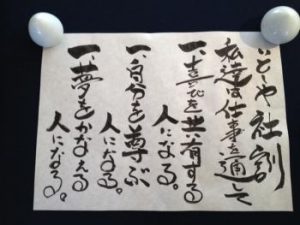 いとや社訓
私達は仕事を通して
一、喜びを共有する
人になる。
一、自分を尊ぶ
人になる。
一、夢をかなえる
人になる。